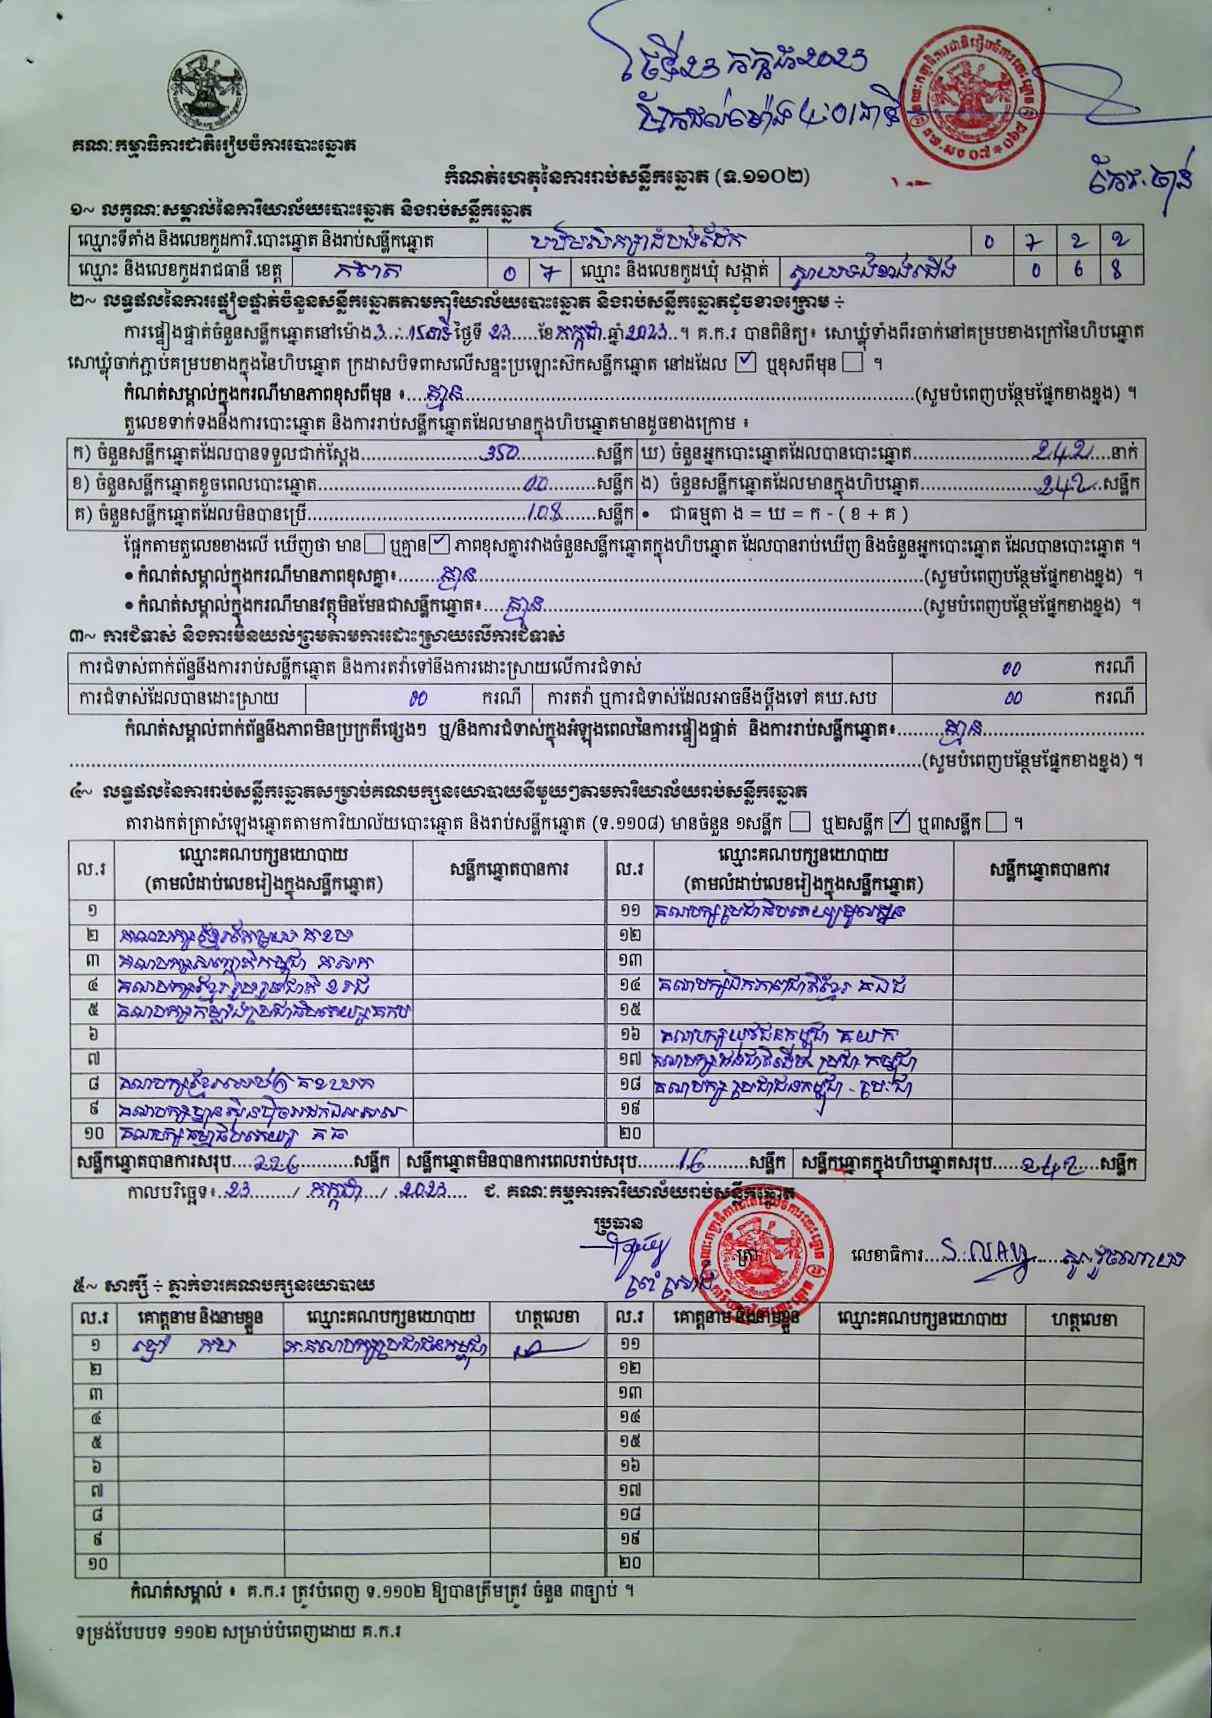 ថ្ងៃទី២៣ កក្កដា ២០២៣
ម៉ោង ៤:០១នាទី
គណៈកម្មាធិការជាតិរៀបចំការបោះឆ្នោត
កំណត់ហេតុនៃការរាប់សន្លឹកឆ្នោត (ទ.១១០២)
១~ លក្ខណៈសម្គាល់នៃការិយាល័យបោះឆ្នោត និងរាប់សន្លឹកឆ្នោត
ឈ្មោះទីតាំង និងលេខកូដការិ.បោះឆ្នោត និងរាប់សន្លឹកឆ្នោត 0 7 2 2
ឈ្មោះ និងលេខកូដរាជធានី ខេត្ត កំពត 0 7 ឈ្មោះ និងលេខកូដឃុំ សង្កាត់ ស្វាយទងខាងជើង 0 6 8
២~ លទ្ធផលនៃការផ្ទៀងផ្ទាត់ចំនួនសន្លឹកឆ្នោតតាមការិយាល័យបោះឆ្នោត និងរាប់សន្លឹកឆ្នោតដូចខាងក្រោម ÷
ការផ្ទៀងផ្ទាត់ចំនួនសន្លឹកឆ្នោតនៅម៉ោង 3:15នាទី ថ្ងៃទី 23 ខែ កក្កដា ឆ្នាំ 2023 ។ គ.ក.រ បានពិនិត្យ៖ សោឃ្លុំទាំងពីរចាក់នៅគម្របខាងក្រៅនៃហិបឆ្នោត
សោឃ្លុំចាក់ភ្ជាប់គម្របខាងក្នុងនៃហិបឆ្នោត ក្រដាសបិទពាសលើសន្ទះប្រឡោះស៊កសន្លឹកឆ្នោត នៅដដែល ☑ ឬខុសពីមុន ☐ ។
កំណត់សម្គាល់ក្នុងករណីមានភាពខុសពីមុន ៖ គ្មាន (សូមបំពេញបន្ថែមផ្នែកខាងខ្នង) ។
តួលេខទាក់ទងនឹងការបោះឆ្នោត និងការរាប់សន្លឹកឆ្នោតដែលមានក្នុងហិបឆ្នោតមានដូចខាងក្រោម ៖
ក) ចំនួនសន្លឹកឆ្នោតដែលបានទទួលជាក់ស្តែង 350 សន្លឹក ឃ) ចំនួនអ្នកបោះឆ្នោតដែលបានបោះឆ្នោត 242 នាក់
ខ) ចំនួនសន្លឹកឆ្នោតខូចពេលបោះឆ្នោត 00 សន្លឹក ង) ចំនួនសន្លឹកឆ្នោតដែលមានក្នុងហិបឆ្នោត 242 សន្លឹក
គ) ចំនួនសន្លឹកឆ្នោតដែលមិនបានប្រើ 108 សន្លឹក • ជាធម្មតា ង = ឃ = ក - ( ខ + គ )
ផ្អែកតាមតួលេខខាងលើ ឃើញថា មាន ☐ ឬគ្មាន ☑ ភាពខុសគ្នារវាងចំនួនសន្លឹកឆ្នោតក្នុងហិបឆ្នោត ដែលបានរាប់ឃើញ និងចំនួនអ្នកបោះឆ្នោត ដែលបានបោះឆ្នោត ។
• កំណត់សម្គាល់ក្នុងករណីមានភាពខុសគ្នា៖ គ្មាន (សូមបំពេញបន្ថែមផ្នែកខាងខ្នង) ។
• កំណត់សម្គាល់ក្នុងករណីមានវត្ថុមិនមែនជាសន្លឹកឆ្នោត៖ គ្មាន (សូមបំពេញបន្ថែមផ្នែកខាងខ្នង) ។
៣~ ការជំទាស់ និងការមិនយល់ព្រមតាមការដោះស្រាយលើការជំទាស់
ការជំទាស់ពាក់ព័ន្ធនឹងការរាប់សន្លឹកឆ្នោត និងការតវ៉ាទៅនឹងការដោះស្រាយលើការជំទាស់ 00 ករណី
ការជំទាស់ដែលបានដោះស្រាយ 00 ករណី ការតវ៉ា ឬការជំទាស់ដែលអាចនឹងប្តឹងទៅ គឃ.សប 00 ករណី
កំណត់សម្គាល់ពាក់ព័ន្ធនឹងភាពមិនប្រក្រតីផ្សេងៗ ឬ/និងការជំទាស់ក្នុងអំឡុងពេលនៃការផ្ទៀងផ្ទាត់ និងការរាប់សន្លឹកឆ្នោត៖ គ្មាន
(សូមបំពេញបន្ថែមផ្នែកខាងខ្នង) ។
៤~ លទ្ធផលនៃការរាប់សន្លឹកឆ្នោតសម្រាប់គណបក្សនយោបាយនីមួយៗតាមការិយាល័យរាប់សន្លឹកឆ្នោត
តារាងកត់ត្រាសំឡេងឆ្នោតតាមការិយាល័យបោះឆ្នោត និងរាប់សន្លឹកឆ្នោត (ទ.១១០៨) មានចំនួន ១សន្លឹក ☐ ឬ២សន្លឹក ☑ ឬ៣សន្លឹក ☐ ។
ល.រ ឈ្មោះគណបក្សនយោបាយ (តាមលំដាប់លេខរៀងក្នុងសន្លឹកឆ្នោត) សន្លឹកឆ្នោតបានការ ល.រ ឈ្មោះគណបក្សនយោបាយ (តាមលំដាប់លេខរៀងក្នុងសន្លឹកឆ្នោត) សន្លឹកឆ្នោតបានការ
១ ១១ គណបក្សប្រជាធិបតេយ្យមូលដ្ឋាន
២ គណបក្សខ្មែរតែមួយ គខម ១២
៣ គណបក្សសញ្ជាតិកម្ពុជា គសក ១៣
៤ គណបក្សខ្មែររួបរួមជាតិ ខរជ ១៤ គណបក្សឯកភាពជាតិខ្មែរ គឯជ
៥ គណបក្សកម្លាំងប្រជាធិបតេយ្យ គកប ១៥
៦ ១៦ គណបក្សយុវជនកម្ពុជា គយក
៧ ១៧ គណបក្ស
៨ គណបក្សខ្មែរ ១៨ គណបក្សប្រជាជនកម្ពុជា
៩ គណបក្សហ្វ៊ុនស៊ិនប៉ិច ១៩
១០ គណបក្សធម្មាធិបតេយ្យ គធ ២០
សន្លឹកឆ្នោតបានការសរុប 226 សន្លឹក សន្លឹកឆ្នោតមិនបានការពេលរាប់សរុប 16 សន្លឹក សន្លឹកឆ្នោតក្នុងហិបឆ្នោតសរុប 242 សន្លឹក
កាលបរិច្ឆេទ៖ 23 / កក្កដា / 2023 ជ. គណៈកម្មការការិយាល័យរាប់សន្លឹកឆ្នោត
ប្រធាន
ត្រា លេខាធិការ
៥~ សាក្សី ÷ ភ្នាក់ងារគណបក្សនយោបាយ
ល.រ គោត្តនាម និងនាមខ្លួន ឈ្មោះគណបក្សនយោបាយ ហត្ថលេខា ល.រ គោត្តនាម និងនាមខ្លួន ឈ្មោះគណបក្សនយោបាយ ហត្ថលេខា
១ គណបក្សប្រជាជនកម្ពុជា ១១
២ ១២
៣ ១៣
៤ ១៤
៥ ១៥
៦ ១៦
៧ ១៧
៨ ១៨
៩ ១៩
១០ ២០
កំណត់សម្គាល់ ៖ គ.ក.រ ត្រូវបំពេញ ទ.១១០២ ឱ្យបានត្រឹមត្រូវ ចំនួន ៣ច្បាប់ ។
ទម្រង់បែបបទ ១១០២ សម្រាប់បំពេញដោយ គ.ក.រ